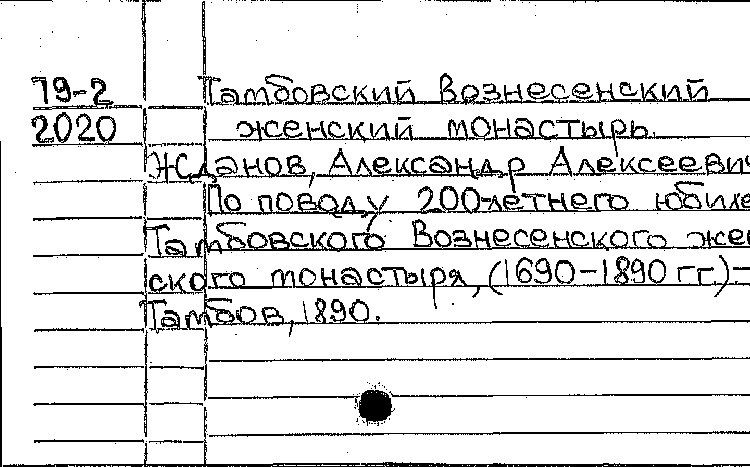 79-2 Тамбовский Вознесенский
2020 женский монастырь.
Жданов, Александр Алексеевич
По поводу 200-летнего юбиле
Тамбовского Вознесенского жен
ского монастыря, (1690-1890 гг.)-
Тамбов, 1890.